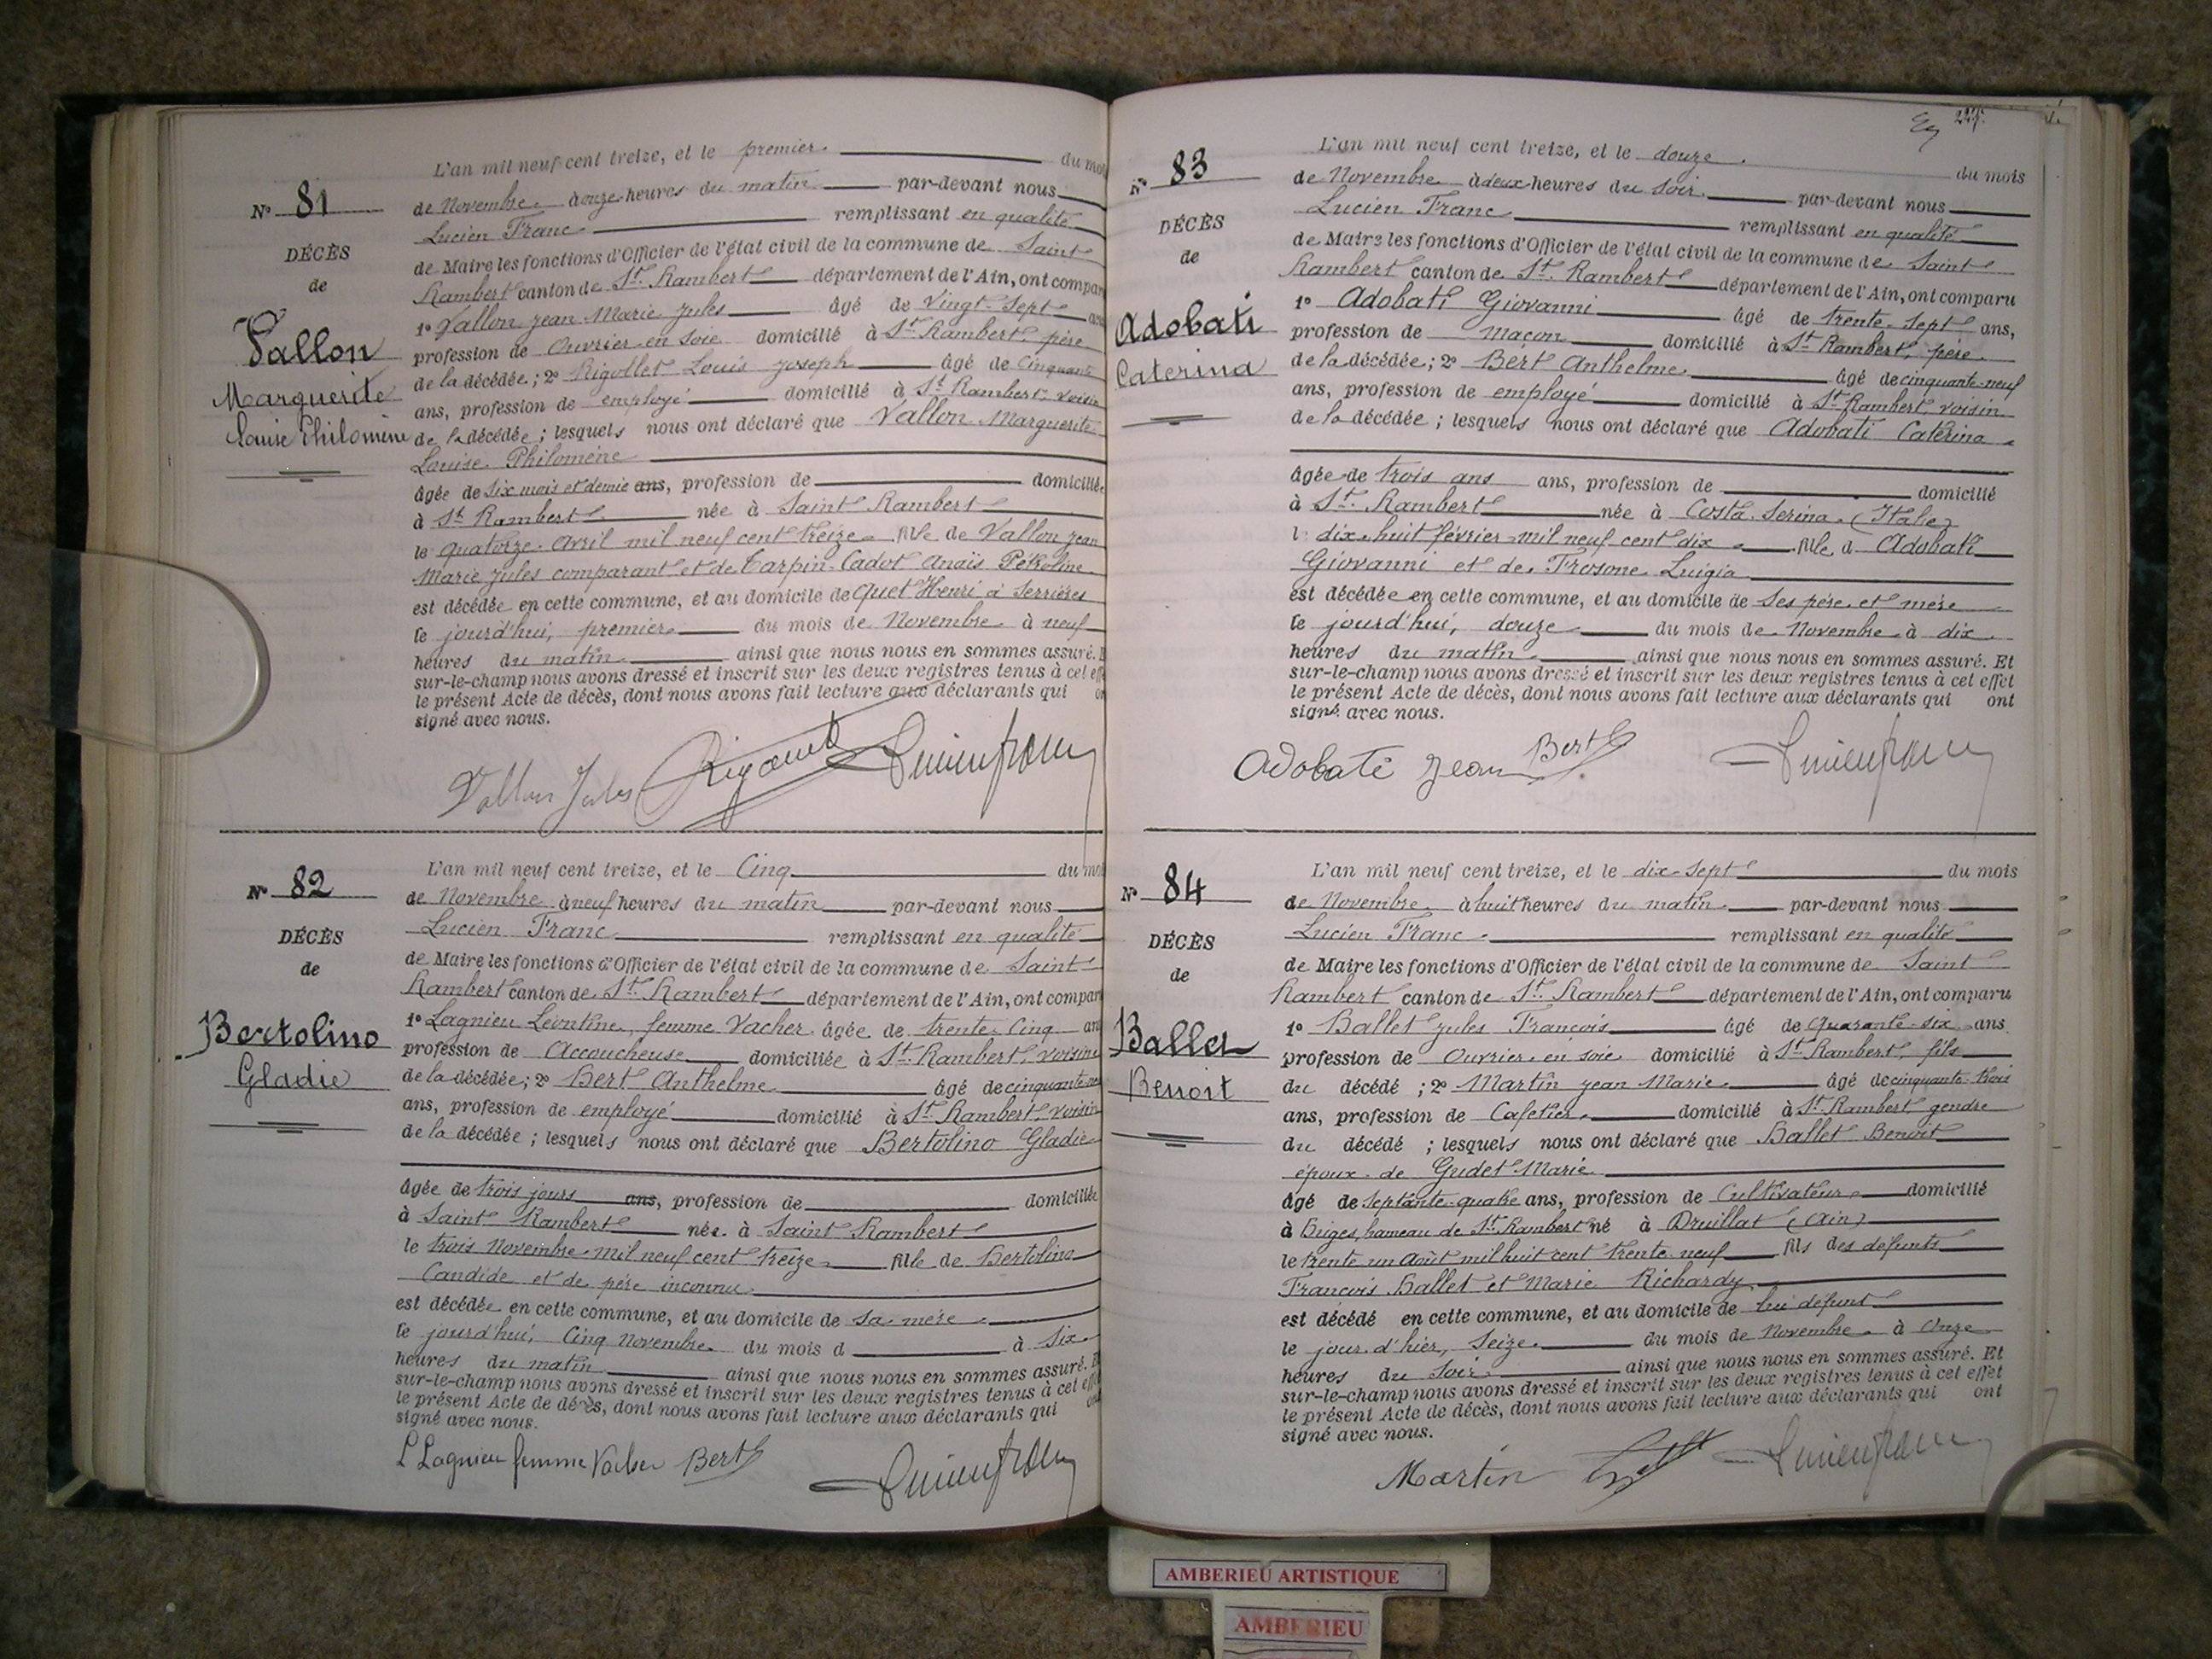 N° 81
DÉCÈS
de
Vallon
Marguerite
Louise Philomène
L'an mil neuf cent treize, et le premier du moi
de Novembre à onze heures du matin par-devant nous
Lucien Franc remplissant en qualité
de Maire les fonctions d'Officier de l'état civil de la commune de Saint
Rambert canton de St. Rambert département de l'Ain, ont compar
1° Vallon Jean Marie Jules âgé de Vingt-Sept ans
profession de Ouvrier en soie domicilié à St. Rambert, père
de la décédée; 2° Rigollet Louis Joseph âgé de Cinquante
ans, profession de employé domicilié à St. Rambert, voisin
de la décédée; lesquels nous ont déclaré que Vallon Marguerite
Louise Philomène
âgée de Six mois et demie ans, profession de domiciliée
à St. Rambert née à Saint Rambert
le quatorze avril mil neuf cent treize fille de Vallon Jean
Marie Jules comparant et de Carpin-Cadot Anaïs Pétroline
est décédée en cette commune, et au domicile de Quet Henri à Serrières
le jourd'hui, premier du mois de Novembre à neuf
heures du matin ainsi que nous nous en sommes assuré. E
sur-le-champ nous avons dressé et inscrit sur les deux registres tenus à cet effe
le présent Acte de décès, dont nous avons fait lecture aux déclarants qui on
signé avec nous.
Vallon Jules Lucien Franc
N° 82
DÉCÈS
de
Bertolino
Gladie
L'an mil neuf cent treize, et le Cinq du moi
de Novembre à neuf heures du matin par-devant nous
Lucien Franc remplissant en qualité
de Maire les fonctions d'Officier de l'état civil de la commune de Saint
Rambert canton de St. Rambert département de l'Ain, ont compar
1° Lagnieu Léontine, femme Vacher âgée de trente-Cinq an
profession de Accoucheuse domiciliée à St. Rambert, voisine
de la décédée; 2° Bert Anthelme âgé de cinquante-neuf
ans, profession de employé domicilié à St. Rambert voisin
de la décédée; lesquels nous ont déclaré que Bertolino Gladie
âgée de trois jours ans, profession de domiciliée
à Saint Rambert née à Saint Rambert
le trois Novembre mil neuf cent treize fille de Bertolino
Candide et de père inconnu
est décédée en cette commune, et au domicile de sa mère
le jourd'hui, Cinq Novembre du mois d à Six
heures du matin ainsi que nous nous en sommes assuré. E
sur-le-champ nous avons dressé et inscrit sur les deux registres tenus à cet effet
le présent Acte de décès, dont nous avons fait lecture aux déclarants qui ont
signé avec nous.
L Lagnieu femme Vacher Bert Lucien Franc
N° 83
DÉCÈS
de
Adobati
Caterina
L'an mil neuf cent treize, et le douze du mois
de Novembre à deux heures du soir par-devant nous
Lucien Franc remplissant en qualité
de Maire les fonctions d'Officier de l'état civil de la commune de Saint
Rambert canton de St. Rambert département de l'Ain, ont comparu
1° Adobati Giovanni âgé de trente-sept ans,
profession de maçon domicilié à St. Rambert, père
de la décédée; 2° Bert Anthelme âgé de cinquante-neuf
ans, profession de employé domicilié à St. Rambert, voisin
de la décédée; lesquels nous ont déclaré que Adobati Caterina
âgée de trois ans ans, profession de domicilié
à St. Rambert née à Costa Serina (Italie)
l dix-huit février mil neuf cent dix fille d Adobati
Giovanni et de Frosone Luigia
est décédée en cette commune, et au domicile de Ses père et mère
le jourd'hui, douze du mois de Novembre à dix
heures du matin ainsi que nous nous en sommes assuré. Et
sur-le-champ nous avons dressé et inscrit sur les deux registres tenus à cet effet
le présent Acte de décès, dont nous avons fait lecture aux déclarants qui ont
signé avec nous.
Adobati Jean Bert Lucien Franc
N° 84
DÉCÈS
de
Ballet
Benoit
L'an mil neuf cent treize, et le dix-sept du mois
de Novembre à huit heures du matin par-devant nous
Lucien Franc remplissant en qualité
de Maire les fonctions d'Officier de l'état civil de la commune de Saint
Rambert canton de St. Rambert département de l'Ain, ont comparu
1° Ballet Jules François âgé de Quarante-six ans
profession de Ouvrier en soie domicilié à St. Rambert, fils
du décédé; 2° Martin Jean Marie âgé de cinquante-trois
ans, profession de Cafetier domicilié à St. Rambert gendre
du décédé; lesquels nous ont déclaré que Ballet Benoit
époux de Gudet Marie
âgé de Septante-quatre ans, profession de Cultivateur domicilié
à Briges, hameau de St. Rambert né à Druillat (Ain)
le trente un Août mil huit cent trente neuf fils des défunts
François Ballet et Marie Richardy
est décédé en cette commune, et au domicile de lui défunt
le jour d'hier, Seize du mois de Novembre à Onze
heures du Soir ainsi que nous nous en sommes assuré. Et
sur-le-champ nous avons dressé et inscrit sur les deux registres tenus à cet effet
le présent Acte de décès, dont nous avons fait lecture aux déclarants qui ont
signé avec nous.
Martin Lucien Franc
AMBERIEU ARTISTIQUE
AMBERIEU